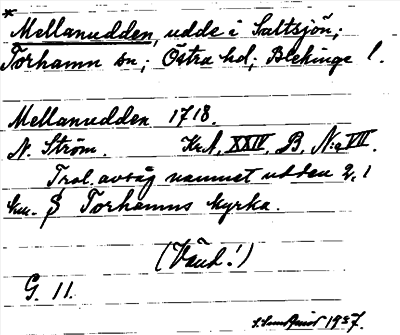 *
Mellanudden, udde i Saltsjön;
Torhamn sn; Östra hd; Blekinge l.
Mellanudden 1718.
N. Ström. Kr.A, XXIV, B, N:o VII.
Trol. avsåg namnet udden 2,1
km. S Torhamns kyrka.
(Vänd!)
G. 11.
1937.